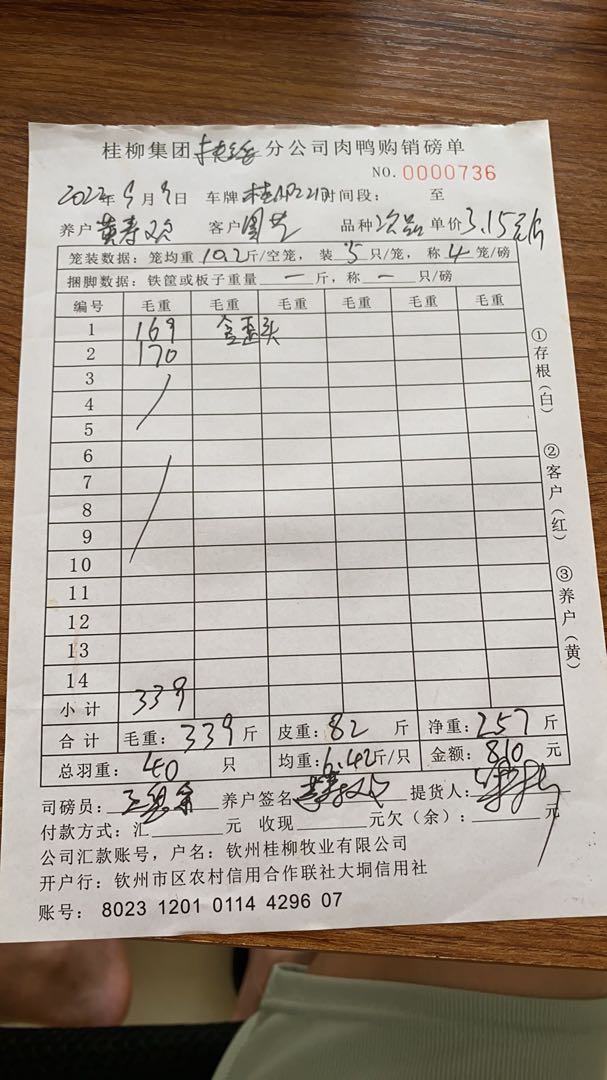 桂柳集团 分公司肉鸭购销磅单
NO. 0000736
2022年9月9日 车牌 时间段： 至
养户 黄寿欢 客户 品种 次品 单价 3.15元/斤
笼装数据：笼均重 10.2 斤/空笼，装 5 只/笼，称 4 笼/磅
捆脚数据：铁筐或板子重量 一 斤，称 一 只/磅
编号 毛重 毛重 毛重 毛重 毛重 毛重
1 169 含歪头
2 170
3
4
5
6
7
8
9
10
11
12
13
14
小计 339
合计 毛重：339 斤 皮重：82 斤 净重：257 斤
总羽重：40 只 均重：6.42斤/只 金额：810 元
司磅员： 养户签名 提货人：
付款方式：汇 元 收现 元欠（余）： 元
公司汇款账号，户名：钦州桂柳牧业有限公司
开户行：钦州市区农村信用合作联社大垌信用社
账号：8023 1201 0114 4296 07
①存根（白）
②客户（红）
③养户（黄）